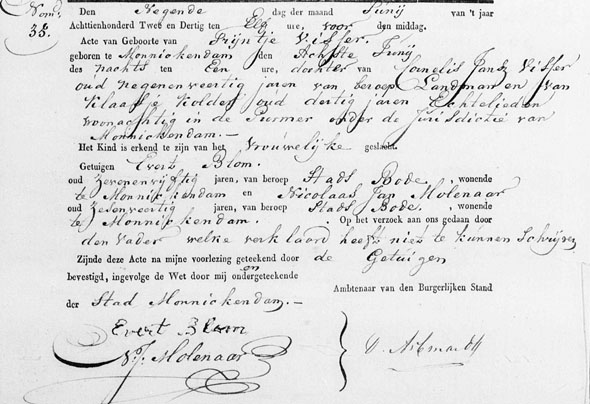 Nom:
38.
Den Negende dag der maand Junij van 't jaar
Achttienhonderd Twee en Dertig ten Elf ure, voor den middag.
Acte van Geboorte van Trijntje Visser.
geboren te Monnickendam den Achtste Junij
des nachts ten Een ure, dochter van Cornelis Jansz Visser
oud negenenveertig jaren van beroep Landman en van
Klaasje Kolder oud dertig jaren Echtelieden
woonachtig in de Purmer onder de Jurisdictie van
Monnickendam.—
Het Kind is erkend te zijn van het Vrouwelijke geslacht.
Getuigen Evert Blom.
oud Zevenenvijftig jaren, van beroep Stads Bode, wonende
te Monnickendam en Nicolaas Jan Molenaar
oud Zesenveertig jaren, van beroep Stads Bode, wonende
te Monnickendam. Op het verzoek aan ons gedaan door
den vader welke verklaard heeft niet te kunnen Schrijven
Zijnde deze Acte na mijne voorlezing geteekend door de Getuigen
en
bevestigd, ingevolge de Wet door mij ondergeteekende
Ambtenaar van den Burgerlijken Stand
der Stad Monnickendam.—
Evert Blom
N.J. Molenaar